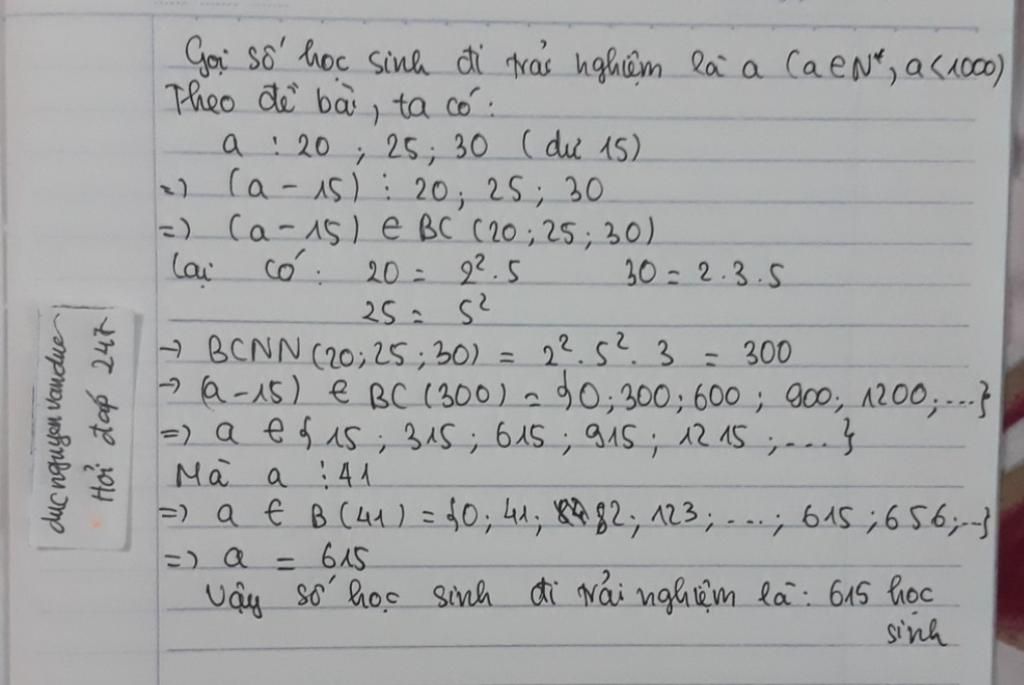 Gọi số học sinh đi trải nghiệm là a (a∈N*, a<1000)
Theo đề bài, ta có:
a : 20 ; 25 ; 30 (dư 15)
=> (a - 15) ⋮ 20 ; 25 ; 30
=> (a - 15) ∈ BC (20 ; 25 ; 30)
Lại có: 20 = 2² . 5 30 = 2 . 3 . 5
25 = 5²
→ BCNN(20 ; 25 ; 30) = 2² . 5² . 3 = 300
→ (a - 15) ∈ BC (300) = {0 ; 300 ; 600 ; 900 ; 1200 ; ...}
=> a ∈ {15 ; 315 ; 615 ; 915 ; 1215 ; ....}
Mà a ⋮ 41
=> a ∈ B(41) = {0 ; 41 ; 82 ; 123 ; ... ; 615 ; 656 ; ...}
=> a = 615
Vậy số học sinh đi trải nghiệm là : 615 học
sinh
ducnguyenvanduc
Hỏi đáp 247